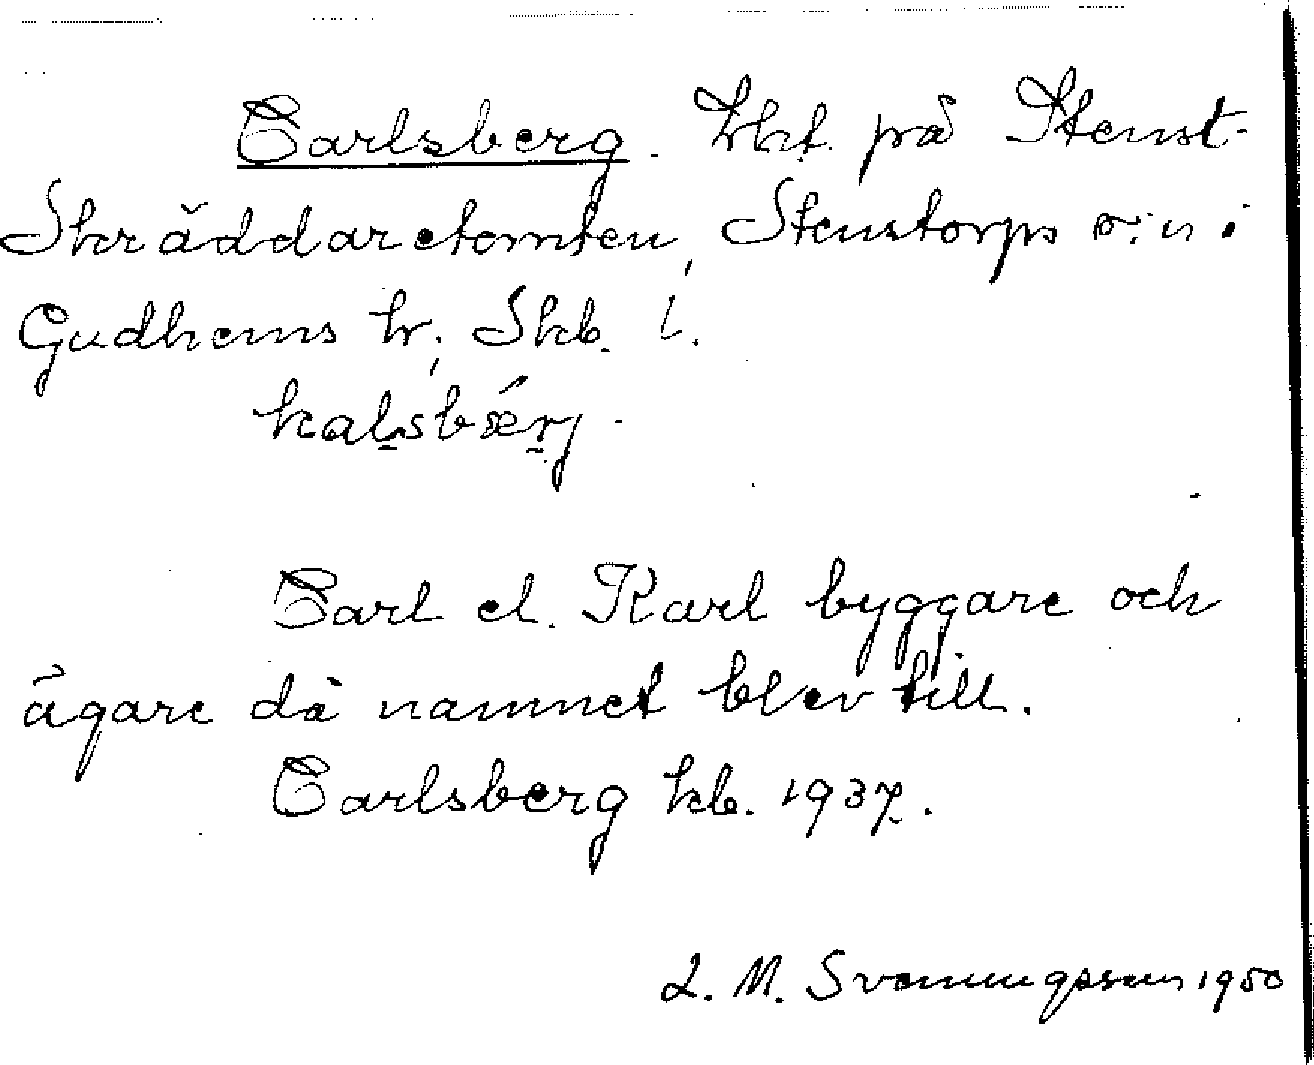 Carlsberg. Lht. på Stenst-
Skräddaretomten, Stenstorps s:n i
Gudhems hr, Skb. l.
kalsbærj.
Carl el. Karl byggare och
ägare då namnet blev till.
Carlsberg kb. 1937.
L. M. Svenungsson 1950